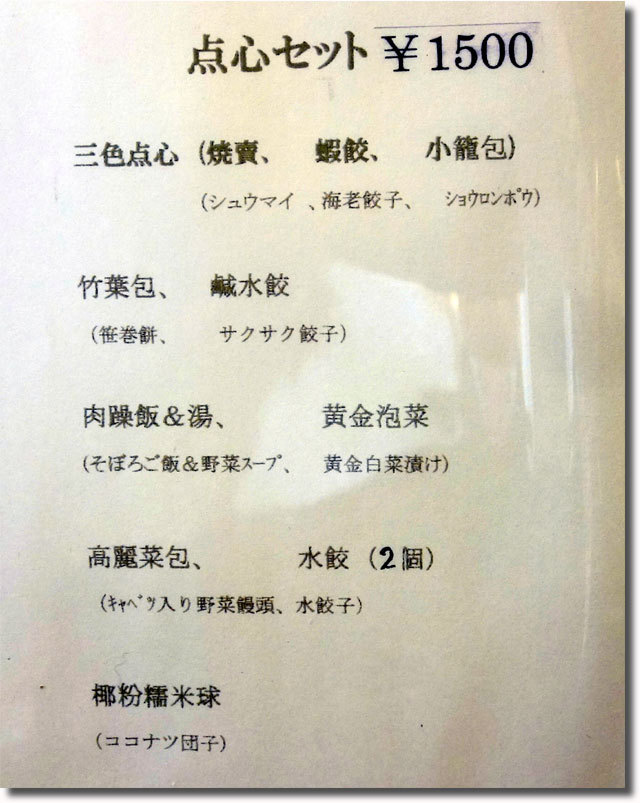 点心セット ￥1500
三色点心（焼賣、　蝦餃、　小籠包）
（シュウマイ 、海老餃子、　ｼｮｳﾛﾝﾎﾟｳ）
竹葉包、　鹹水餃
（笹巻餅、　サクサク餃子）
肉躁飯＆湯、　黄金泡菜
（そぼろご飯＆野菜ｽｰﾌﾟ、　黄金白菜漬け）
高麗菜包、　水餃（２個）
（ｷｬﾍﾞﾂ入り野菜饅頭、水餃子）
椰粉糯米球
（ココナツ団子）